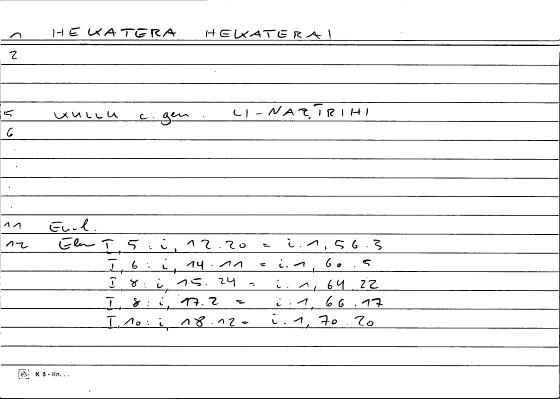 1 HEKATERA HEKATERAI
2
5 KULLU c. gen. LI-NAẒĪRIHI
6
11 Eucl.
12 Elem I, 5 : i, 12.20 = i.1, 56.3
I, 6 : i, 14.11 = i.1, 60.5
I, 8 : i, 15.24 = i.1, 64.22
I, 8 : i, 17.2 = i.1, 66.17
I, 10 : i, 18.12 = i.1, 70.20